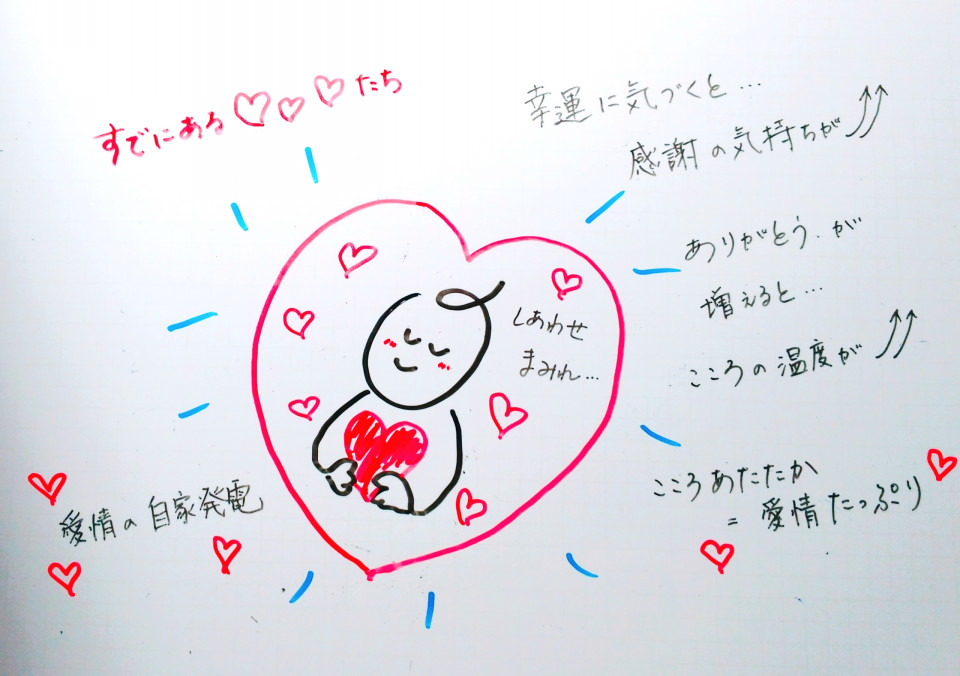 すでにある♡♡♡たち
幸運に気づくと…
感謝の気持ちが↑↑
ありがとう、が
増えると…
こころの温度が↑↑
こころあたたか
=愛情たっぷり
しあわせ
まみれ…
愛情の自家発電